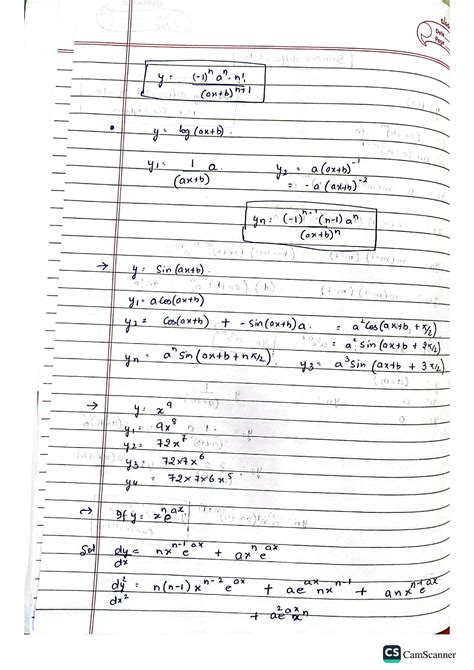 y = (-1)ⁿ aⁿ · n! / (ax+b)ⁿ⁺¹
y = log(ax+b).
y₁ = 1/(ax+b) a.    y₂ = a(ax+b)⁻¹
= -a(ax+b)⁻²
yn = (-1)ⁿ⁻¹ (n-1) aⁿ / (ax+b)ⁿ
→ y = sin(ax+b).
y₁ = a cos(ax+b)
y₂ = cos(ax+b) + -sin(ax+b)a. = a² cos(ax+b + π/2)
= a² sin(ax+b + 2π/2)
yn = aⁿ sin(ax+b+nπ/2)    y₃ = a³ sin(ax+b + 3π/2)
→ y = x⁹
y₁ = 9x⁸
y₂ = 72x⁷
y₃ = 72x7x⁶
y₄ = 72x7x6x⁵
→ If y = xⁿeᵃˣ
Sol dy/dx = nxⁿ⁻¹eᵃˣ + axⁿeᵃˣ
dy²/dx² = n(n-1)xⁿ⁻²eᵃˣ + aeᵃˣnxⁿ⁻¹ + anxⁿ⁻¹eᵃˣ
+ a²eᵃˣxⁿ
CS CamScanner